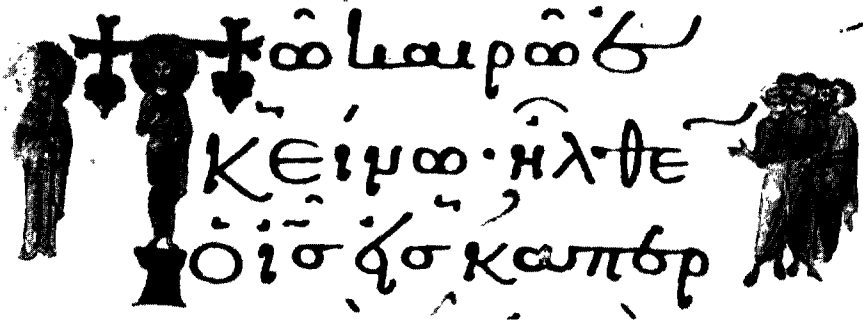 Τῶ καιρῶ ἐ
κείνω· ἦλθεν
ὁ ἰσ εἰσ καπερ